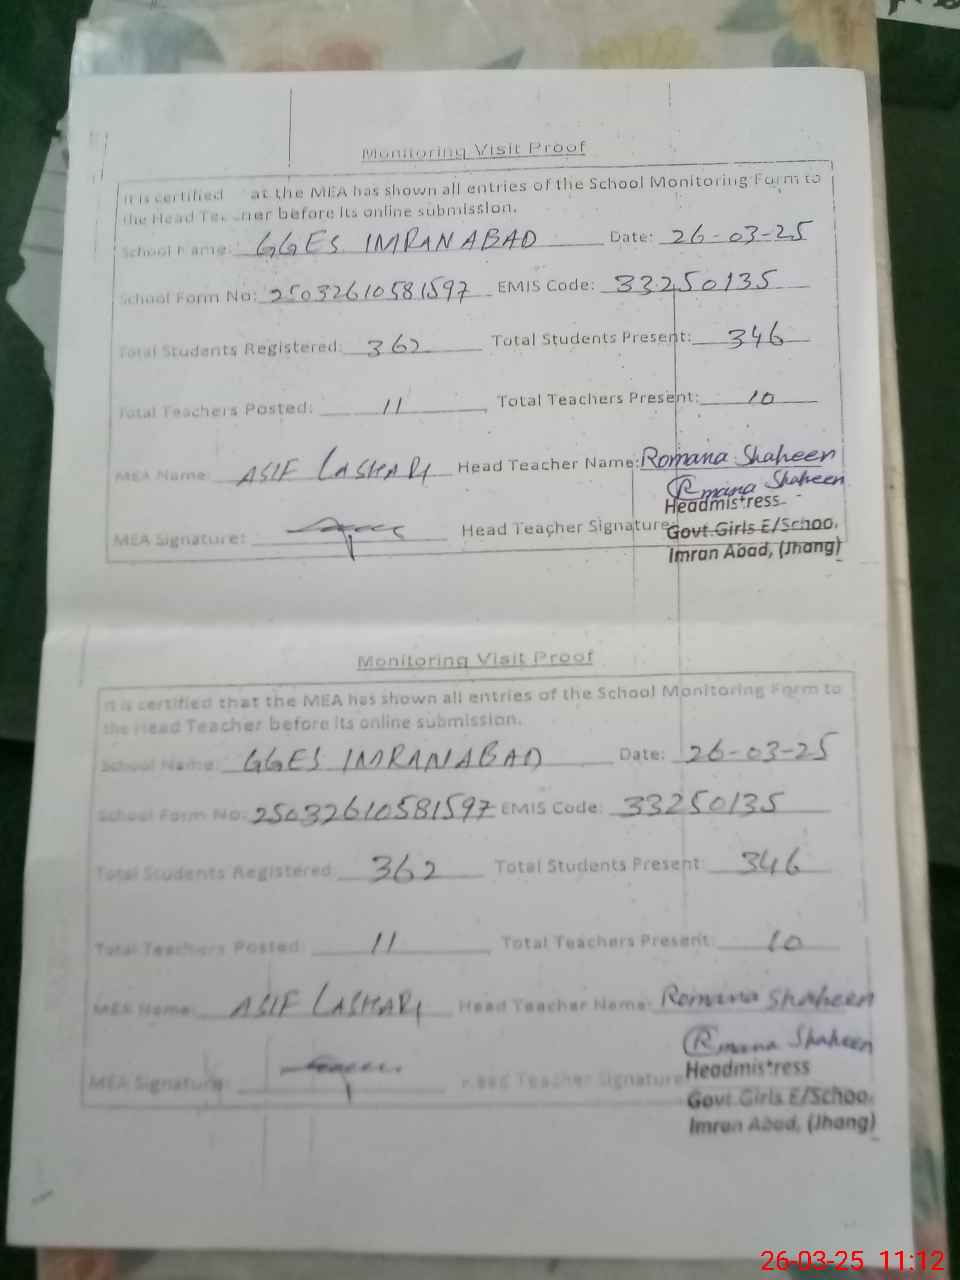 Monitoring Visit Proof
It is certified at the MEA has shown all entries of the School Monitoring Form to
the Head Teacher before its online submission.
School Name: GGES IMRANABAD Date: 26-03-25
School Form No: 25032610581597 EMIS Code: 33250135
Total Students Registered: 362 Total Students Present: 346
Total Teachers Posted: 11 Total Teachers Present: 10
MEA Name: ASIF LASHARI Head Teacher Name: Romana Shaheen
Romana Shaheen
Headmistress
MEA Signature: Head Teacher Signature
Govt.Girls E/Schoo.
Imran Abad, (Jhang)
Monitoring Visit Proof
It is certified that the MEA has shown all entries of the School Monitoring Form to
the Head Teacher before its online submission.
School Name: GGES IMRANABAD Date: 26-03-25
School Form No: 25032610581597 EMIS Code: 33250135
Total Students Registered: 362 Total Students Present: 346
Total Teachers Posted: 11 Total Teachers Present: 10
MEA Name: ASIF LASHARI Head Teacher Name: Romana Shaheen
Romana Shaheen
Headmistress
MEA Signature: Head Teacher Signature
Govt.Girls E/Schoo.
Imran Abad, (Jhang)
26-03-25 11:12